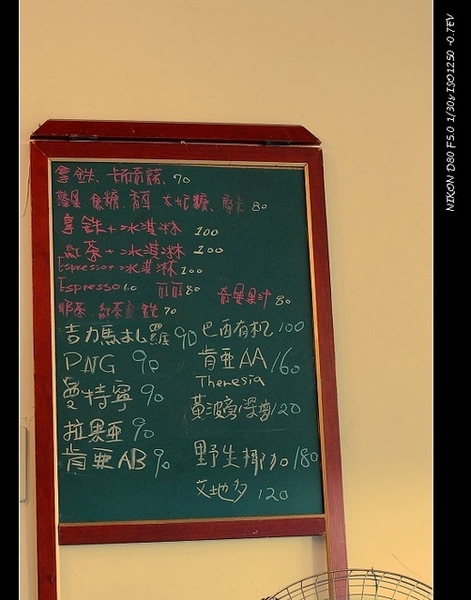 拿鉄、卡布奇諾、70
焦糖、香草、太妃糖、摩卡 80
拿鉄+冰淇淋 100
紅茶+冰淇淋 100
Espresso+冰淇淋 100
Espresso 60 80
奇異果汁 80
奶茶、紅茶 70
吉力馬扎羅 90 巴西有机 100
PNG 90 肯亜AA 160
Theresia
曼特寧 90 黃波旁深焙 120
拉果亜 90
肯亜AB 90 野生椰加 180
艾地多 120
NIKON D80 F5.0 1/30y ISO1250 -0.7EV